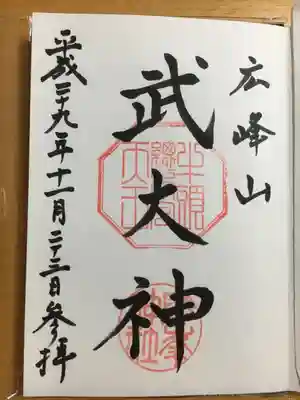 広峰山
武大神
牛頭
天王
平成二十九年十一月二十三日參拝